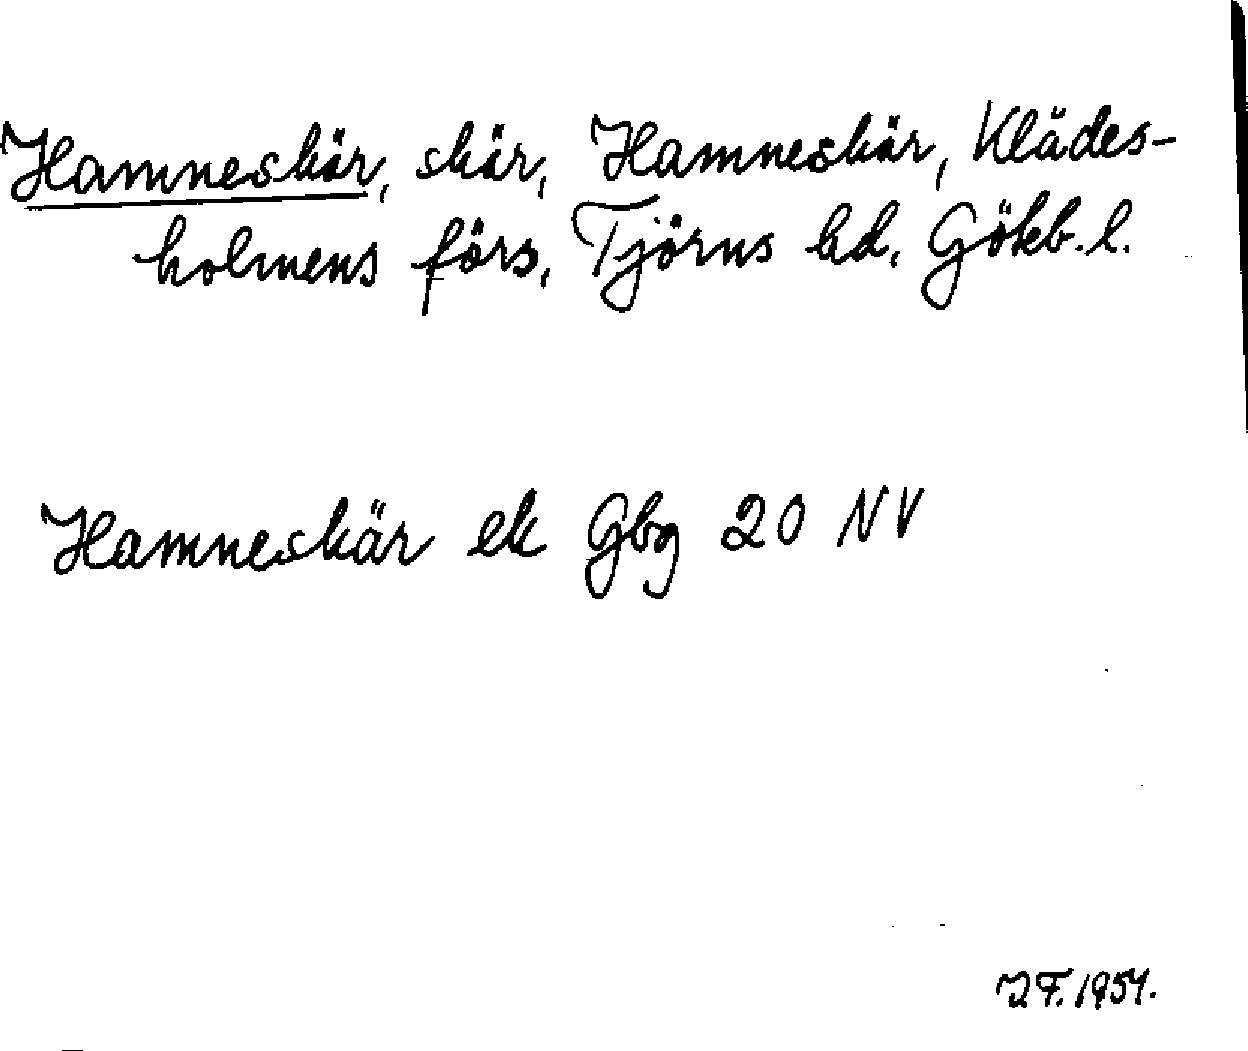 Hamneskär, skär, Hamneskär, Klädes-
holmens förs, Tjörns hd, Gökb. l.
Hamneskär ek Gbg 20 NV
1954.